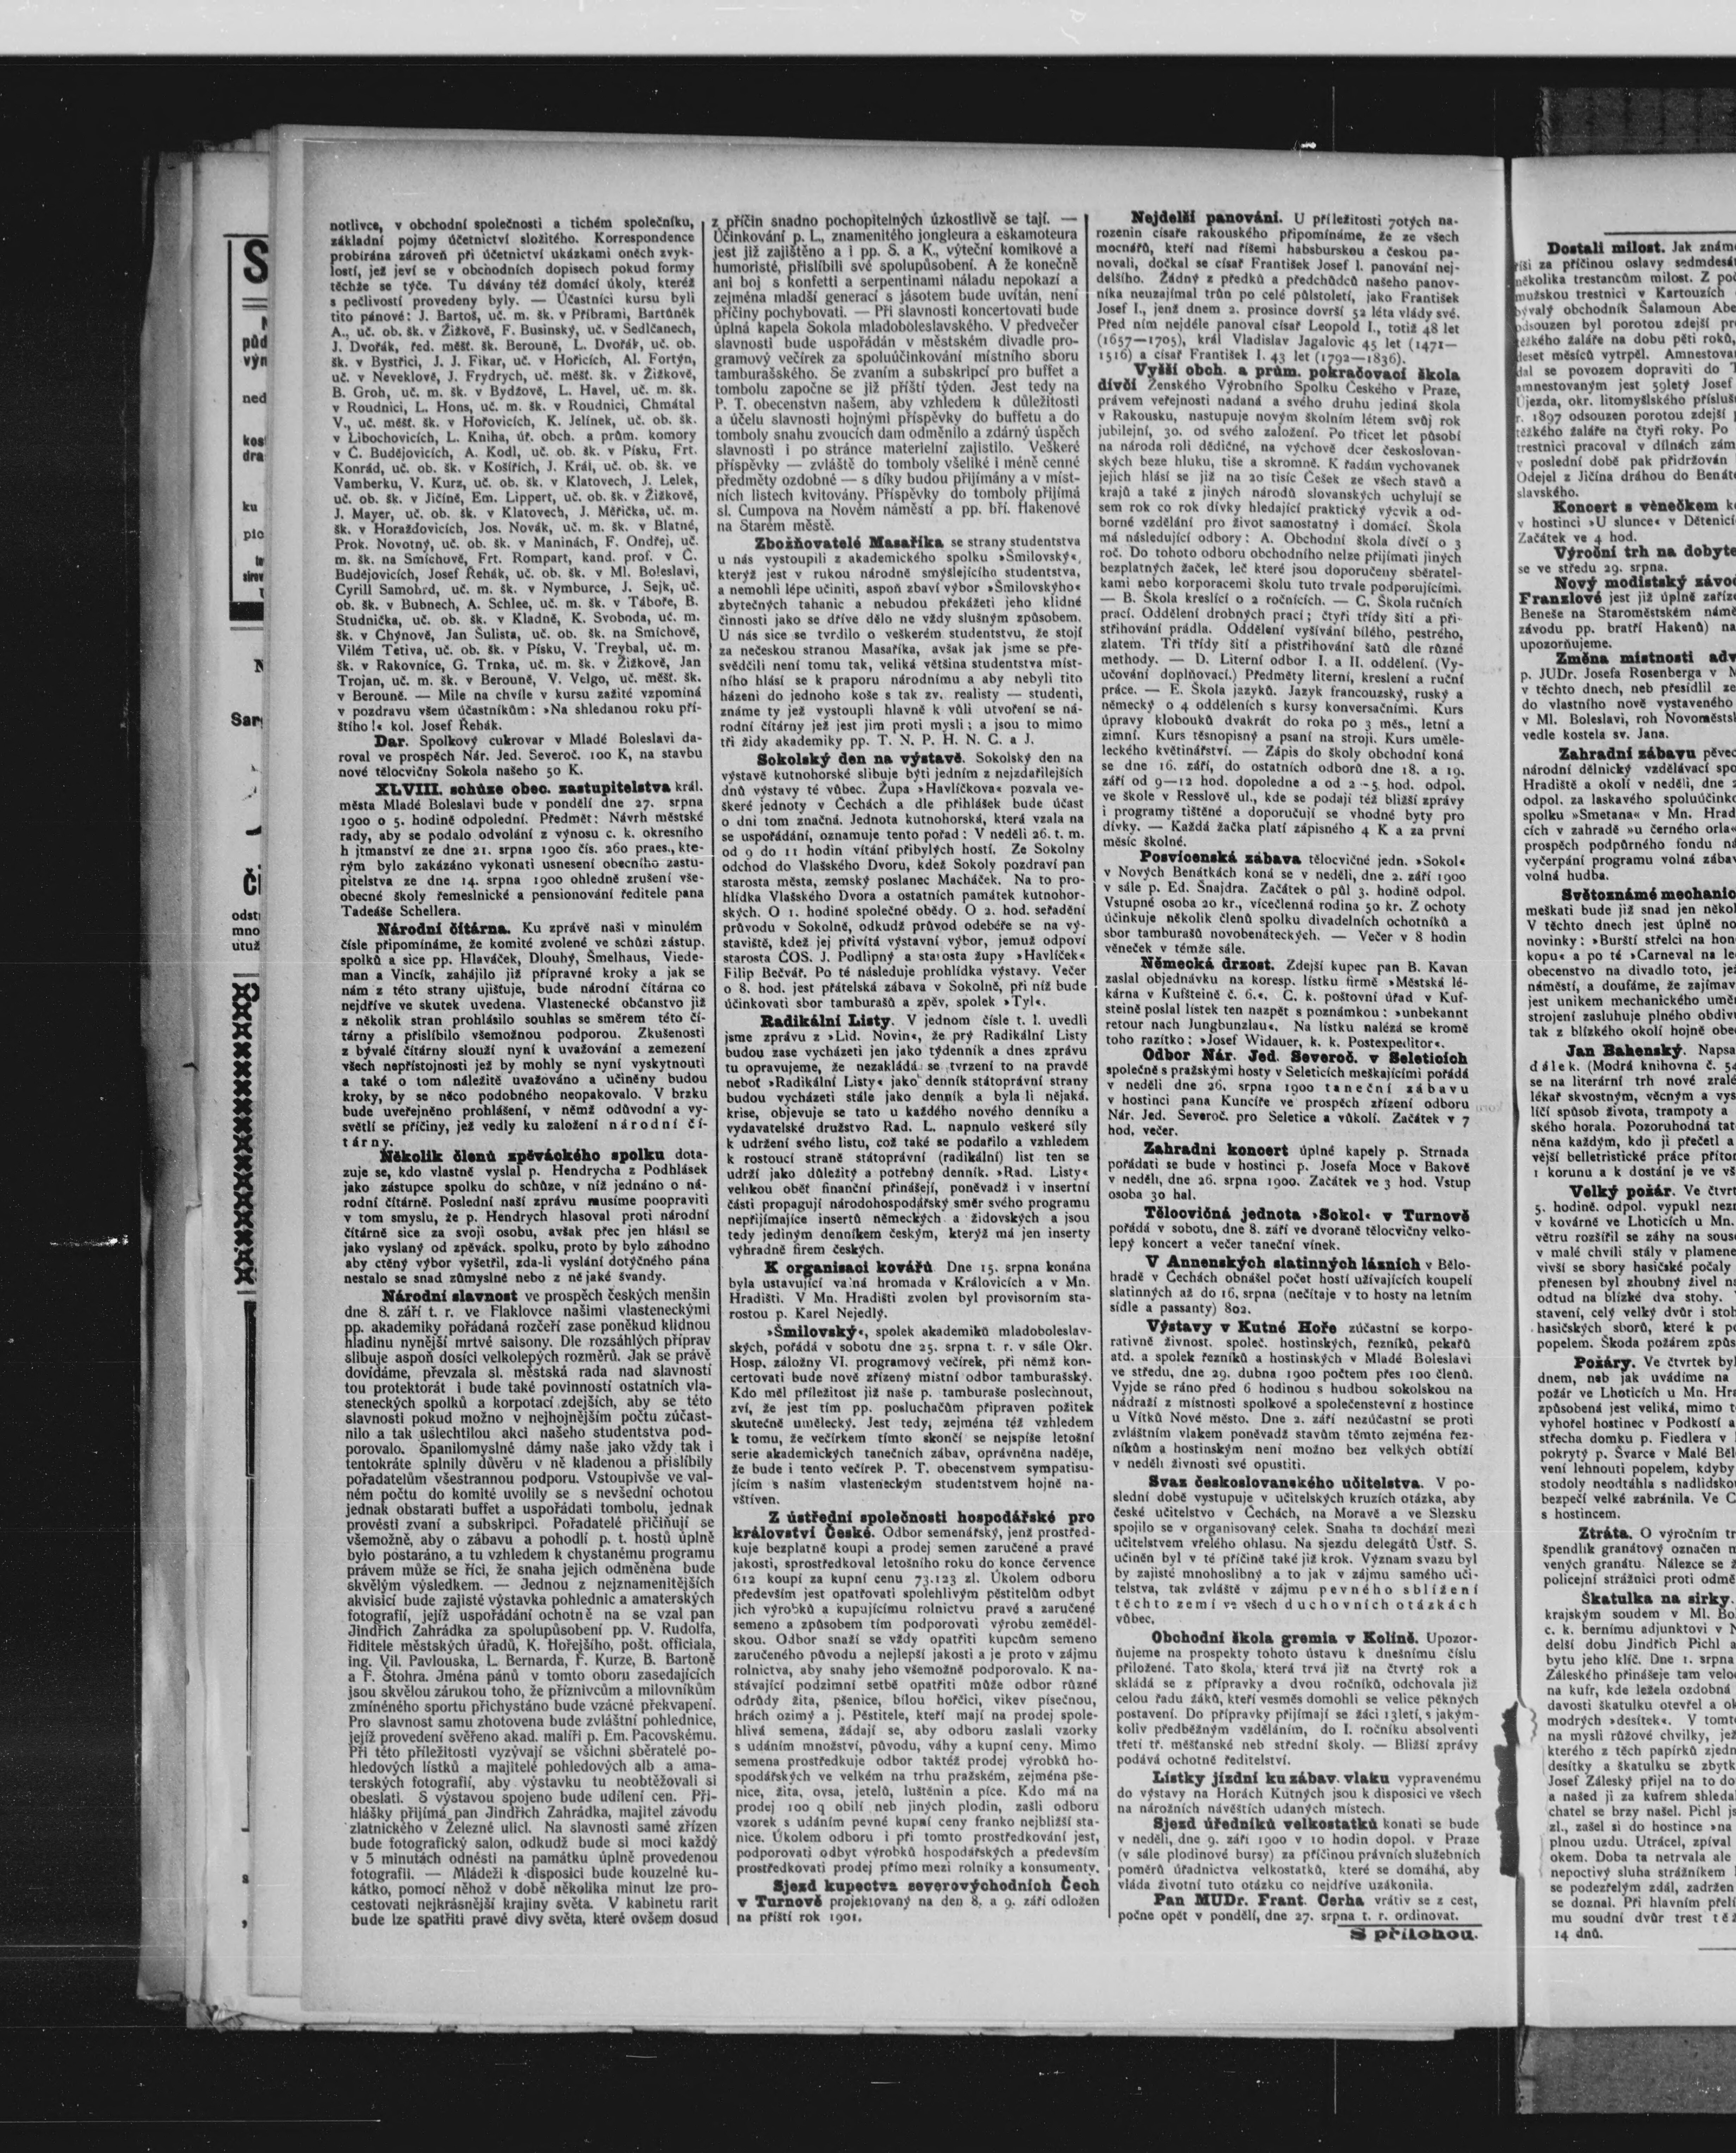 notlivce, v obchodní společnosti a tichém společníku,
základní pojmy účetnictví složitého. Korrespondence
probírána zároveň při účetnictví ukázkami oněch zvyk-
lostí, jež jeví se v obchodních dopisech pokud formy
těchže se týče. Tu dávány též domácí úkoly, kteréž
s pečlivostí provedeny byly. — Účastníci kursu byli
tito pánové: J. Bartoš, uč. m. šk. v Příbrami, Bartůněk
A., uč. ob. šk. v Žižkově, F. Businský, uč. v Sedlčanech,
J. Dvořák, řed. měšť. šk. Berouně, L. Dvořák, uč. ob.
šk. v Bystřici, J. J. Fikar, uč. v Hořicích, Al. Fortýn,
uč. v Neveklově, J. Frydrych, uč. měšť. šk. v Žižkově,
B. Groh, uč. m. šk. v Bydžově, L. Havel, uč. m. šk.
v Roudnici, L. Hons, uč. m. šk. v Roudnici, Chmátal
V., uč. měšť. šk. v Hořovicích, K. Jelínek, uč. ob. šk.
v Libochovicích, L. Kniha, úř. obch. a prům. komory
v Č. Budějovicích, A. Kodl, uč. ob. šk. v Písku, Frt.
Konrád, uč. ob. šk. v Košířích, J. Král, uč. ob. šk. ve
Vamberku, V. Kurz, uč. ob. šk. v Klatovech, J. Lelek,
uč. ob. šk. v Jičíně, Em. Lippert, uč. ob. šk. v Žižkově,
J. Mayer, uč. ob. šk. v Klatovech, J. Měřička, uč. m.
šk. v Horažďovicích, Jos. Novák, uč. m. šk. v Blatné,
Prok. Novotný, uč. ob. šk. v Maninách, F. Ondřej, uč.
m. šk. na Smíchově, Frt. Rompart, kand. prof. v Č.
Budějovicích, Josef Řehák, uč. ob. šk. v Ml. Boleslavi,
Cyrill Samohrd, uč. m. šk. v Nymburce, J. Sejk, uč.
ob. šk. v Bubnech, A. Schlee, uč. m. šk. v Táboře, B.
Studnička, uč. ob. šk. v Kladně, K. Svoboda, uč. m.
šk. v Chýnově, Jan Šulista, uč. ob. šk. na Smíchově,
Vilém Tetiva, uč. ob. šk. v Písku, V. Treybal, uč. m.
šk. v Rakovníce, G. Trnka, uč. m. šk. v Žižkově, Jan
Trojan, uč. m. šk. v Berouně, V. Velgo, uč. měšť. šk.
v Berouně. — Mile na chvíle v kursu zažité vzpomíná
v pozdravu všem účastníkům: »Na shledanou roku pří-
štího!« kol. Josef Řehák.
Dar. Spolkový cukrovar v Mladé Boleslavi da-
roval ve prospěch Nár. Jed. Severoč. 100 K, na stavbu
nové tělocvičny Sokola našeho 50 K.
XLVIII. schůze obec. zastupitelstva král.
města Mladé Boleslavi bude v pondělí dne 27. srpna
1900 o 5. hodině odpolední. Předmět: Návrh městské
rady, aby se podalo odvolání z výnosu c. k. okresního
h jtmanství ze dne 21. srpna 1900 čís. 260 praes., kte-
rým bylo zakázáno vykonati usnesení obecního zastu-
pitelstva ze dne 14. srpna 1900 ohledně zrušení vše-
obecné školy řemeslnické a pensionování ředitele pana
Tadeáše Schellera.
Národní čítárna. Ku zprávě naší v minulém
čísle připomínáme, že komité zvolené ve schůzi zástup.
spolků a sice pp. Hlaváček, Dlouhý, Šmelhaus, Viede-
man a Vincík, zahájilo již přípravné kroky a jak se
nám z této strany ujišťuje, bude národní čítárna co
nejdříve ve skutek uvedena. Vlastenecké občanstvo již
z několik stran prohlásilo souhlas se směrem této čí-
tárny a přislíbilo všemožnou podporou. Zkušenosti
z bývalé čítárny slouží nyní k uvažování a zemezení
všech nepřístojnosti jež by mohly se nyní vyskytnouti
a také o tom náležitě uvažováno a učiněny budou
kroky, by se něco podobného neopakovalo. V brzku
bude uveřejněno prohlášení, v němž odůvodní a vy-
světlí se příčiny, jež vedly ku založení národní čí-
tárny.
Několik členů zpěváckého spolku dota-
zuje se, kdo vlastně vyslal p. Hendrycha z Podhlásek
jako zástupce spolku do schůze, v níž jednáno o ná-
rodní čítárně. Poslední naší zprávu musíme poopraviti
v tom smyslu, že p. Hendrych hlasoval proti národní
čítárně sice za svoji osobu, avšak přec jen hlásil se
jako vyslaný od zpěváck. spolku, proto by bylo záhodno
aby ctěný výbor vyšetřil, zda-li vyslání dotyčného pána
nestalo se snad zůmyslně nebo z nějaké švandy.
Národní slavnost ve prospěch českých menšin
dne 8. září t. r. ve Flaklovce našimi vlasteneckými
pp. akademiky pořádaná rozčeří zase poněkud klidnou
hladinu nynější mrtvé saisony. Dle rozsáhlých příprav
slibuje aspoň dosíci velkolepých rozměrů. Jak se právě
dovídáme, převzala sl. městská rada nad slavností
tou protektorát i bude také povinností ostatních vla-
steneckých spolků a korpotací zdejších, aby se této
slavnosti pokud možno v nejhojnějším počtu zúčast-
nilo a tak ušlechtilou akci našeho studentstva pod-
porovalo. Spanilomyslné dámy naše jako vždy tak i
tentokráte splnily důvěru v ně kladenou a přislíbily
pořadatelům všestrannou podporu. Vstoupivše ve val-
ném počtu do komité uvolily se s nevšední ochotou
jednak obstarati buffet a uspořádati tombolu, jednak
provésti zvaní a subskripci. Pořadatelé přičiňují se
všemožně, aby o zábavu a pohodlí p. t. hostů úplně
bylo postaráno, a tu vzhledem k chystanému programu
právem může se říci, že snaha jejich odměněna bude
skvělým výsledkem. — Jednou z nejznamenitějších
akvisicí bude zajisté výstavka pohlednic a amaterských
fotografií, jejíž uspořádání ochotně na se vzal pan
Jindřich Zahrádka za spolupůsobení pp. V. Rudolfa,
řiditele městských úřadů, K. Hořejšího, pošt. officiala,
ing. Vil. Pavlouska, L. Bernarda, F. Kurze, B. Bartoně
a F. Štohra. Jména pánů v tomto oboru zasedajících
jsou skvělou zárukou toho, že příznivcům a milovníkům
zmíněného sportu přichystáno bude vzácné překvapení.
Pro slavnost samu zhotovena bude zvláštní pohlednice,
jejíž provedení svěřeno akad. malíři p. Em. Pacovskému.
Při této příležitosti vyzývají se všichni sběratelé po-
hledových lístků a majitelé pohledových alb a ama-
terských fotografií, aby výstavku tu neobtěžovali si
obeslati. S výstavou spojeno bude udílení cen. Při-
hlášky přijímá pan Jindřich Zahrádka, majitel závodu
zlatnického v Železné ulici. Na slavnosti samé zřízen
bude fotografický salon, odkudž bude si moci každý
v 5 minutách odnésti na památku úplně provedenou
fotografii. — Mládeži k disposici bude kouzelné ku-
kátko, pomocí něhož v době několika minut lze pro-
cestovati nejkrásnější krajiny světa. V kabinetu rarit
bude lze spatřiti pravé divy světa, které ovšem dosud
z příčin snadno pochopitelných úzkostlivě se tají. —
Účinkování p. L., znamenitého jongleura a eskamoteura
jest již zajištěno a i pp. S. a K., výteční komikové a
humoristé, přislíbili své spolupůsobení. A že konečně
ani boj s konfetti a serpentinami náladu nepokazí a
zejména mladší generací s jásotem bude uvítán, není
příčiny pochybovati. — Při slavnosti koncertovati bude
úplná kapela Sokola mladoboleslavského. V předvečer
slavnosti bude uspořádán v městském divadle pro-
gramový večírek za spoluúčinkování místního sboru
tamburašského. Se zvaním a subskripcí pro buffet a
tombolu započne se již příští týden. Jest tedy na
P. T. obecenstvn našem, aby vzhledem k důležitosti
a účelu slavnosti hojnými příspěvky do buffetu a do
tomboly snahu zvoucích dam odměnilo a zdárný úspěch
slavnosti i po stránce materielní zajistilo. Veškeré
příspěvky — zvláště do tomboly všeliké i méně cenné
předměty ozdobné — s díky budou přijímány a v míst-
ních listech kvitovány. Příspěvky do tomboly přijímá
sl. Čumpova na Novém náměstí a pp. bří. Hakenové
na Starém městě.
Zbožňovatelé Masaříka se strany studentstva
u nás vystoupili z akademického spolku »Šmilovský«,
kterýž jest v rukou národně smýšlejícího studentstva,
a nemohli lépe učiniti, aspoň zbaví výbor »Šmilovskýho«
zbytečných tahanic a nebudou překážeti jeho klidné
činnosti jako se dříve dělo ne vždy slušným způsobem.
U nás sice se tvrdilo o veškerém studentstvu, že stojí
za nečeskou stranou Masaříka, avšak jak jsme se pře-
svědčili není tomu tak, veliká většina studentstva míst-
ního hlásí se k praporu národnímu a aby nebyli tito
házeni do jednoho koše s tak zv. realisty — studenti,
známe ty jež vystoupli hlavně k vůli utvoření se ná-
rodní čítárny jež jest jim proti mysli; a jsou to mimo
tři židy akademiky pp. T. N. P. H. N. C. a J.
Sokolský den na výstavě. Sokolský den na
výstavě kutnohorské slibuje býti jedním z nejzdařilejších
dnů výstavy té vůbec. Župa »Havlíčkova« pozvala ve-
škeré jednoty v Čechách a dle přihlášek bude účast
o dni tom značná. Jednota kutnohorská, která vzala na
se uspořádání, oznamuje tento pořad: V neděli 26. t. m.
od 9 do 11 hodin vítání přibylých hostí. Ze Sokolny
odchod do Vlašského Dvoru, kdež Sokoly pozdraví pan
starosta města, zemský poslanec Macháček. Na to pro-
hlídka Vlašského Dvora a ostatních památek kutnohor-
ských. O 1. hodině společné obědy. O 2. hod. seřadění
průvodu v Sokolně, odkudž průvod odebéře se na vý-
staviště, kdež jej přivítá výstavní výbor, jemuž odpoví
starosta ČOS. J. Podlipný a starosta župy »Havlíček«
Filip Bečvář. Po té následuje prohlídka výstavy. Večer
o 8. hod. jest přátelská zábava v Sokolně, při níž bude
účinkovati sbor tamburašů a zpěv. spolek »Tyl«.
Radikální Listy. V jednom čísle t. l. uvedli
jsme zprávu z »Lid. Novin«, že prý Radikální Listy
budou zase vycházeti jen jako týdenník a dnes zprávu
tu opravujeme, že nezakládá se tvrzení to na pravdě
neboť »Radikální Listy« jako denník státoprávní strany
budou vycházeti stále jako denník a byla-li nějaká.
krise, objevuje se tato u každého nového denníku a
vydavatelské družstvo Rad. L. napnulo veškeré síly
k udržení svého listu, což také se podařilo a vzhledem
k rostoucí straně státoprávní (radikální) list ten se
udrží jako důležitý a potřebný denník. »Rad. Listy«
velikou oběť finanční přinášejí, poněvadž i v insertní
části propagují národohospodářský směr svého programu
nepřijímajíce insertů německých a židovských a jsou
tedy jediným denníkem českým, kterýž má jen inserty
výhradně firem českých.
K organisaci kovářů. Dne 15. srpna konána
byla ustavující valná hromada v Královicích a v Mn.
Hradišti. V Mn. Hradišti zvolen byl provisorním sta-
rostou p. Karel Nejedlý.
»Šmilovský«, spolek akademiků mladoboleslav-
ských, pořádá v sobotu dne 25. srpna t. r. v sále Okr.
Hosp. záložny VI. programový večírek, při němž kon-
certovati bude nově zřízený místní odbor tamburašský.
Kdo měl příležitost již naše p. tamburaše poslechnout,
zví, že jest tím pp. posluchačům připraven požitek
skutečně umělecký. Jest tedy, zejména též vzhledem
k tomu, že večírkem tímto skončí se nejspíše letošní
serie akademických tanečních zábav, oprávněna naděje,
že bude i tento večírek P. T. obecenstvem sympatisu-
jícím s našim vlasteneckým studentstvem hojně na-
vštíven.
Z ústřední společnosti hospodářské pro
království České. Odbor semenářský, jenž prostřed-
kuje bezplatně koupi a prodej semen zaručené a pravé
jakosti, sprostředkoval letošního roku do konce července
612 koupí za kupní cenu 73.123 zl. Úkolem odboru
především jest opatřovati spolehlivým pěstitelům odbyt
jich výrobků a kupujícímu rolnictvu pravé a zaručené
semeno a způsobem tím podporovati výrobu zeměděl-
skou. Odbor snaží se vždy opatřiti kupcům semeno
zaručeného původu a nejlepší jakosti a je proto v zájmu
rolnictva, aby snahy jeho všemožně podporovalo. K na-
stávající podzimní setbě opatřiti může odbor různé
odrůdy žita, pšenice, bílou hořčici, vikev písečnou,
hrách ozimý a j. Pěstitele, kteří mají na prodej spole-
hlivá semena, žádají se, aby odboru zaslali vzorky
s udáním množství, původu, váhy a kupní ceny. Mimo
semena prostředkuje odbor taktéž prodej výrobků ho-
spodářských ve velkém na trhu pražském, zejména pše-
nice, žita, ovsa, jetelů, luštěnin a píce. Kdo má na
prodej 100 q obilí neb jiných plodin, zašli odboru
vzorek s udáním pevné kupní ceny franko nejbližší sta-
nice. Úkolem odboru i při tomto prostředkování jest,
podporovati odbyt výrobků hospodářských a především
prostředkovati prodej přímo mezi rolníky a konsumenty.
Sjezd kupectva severovýchodních Čech
v Turnově projektovaný na den 8. a 9. září odložen
na příští rok 1901.
Nejdelší panování. U příležitosti 70tých na-
rozenin císaře rakouského připomínáme, že ze všech
mocnářů, kteří nad říšemi habsburskou a českou pa-
novali, dočkal se císař František Josef I. panování nej-
delšího. Žádný z předků a předchůdců našeho panov-
níka neuzajímal trůn po celé půlstoletí, jako František
Josef I., jenž dnem 2. prosince dovrší 52 léta vlády své.
Před ním nejdéle panoval císař Leopold I., totiž 48 let
(1657—1705), král Vladislav Jagalovic 45 let (1471—
1516) a císař František I. 43 let (1792—1836).
Vyšší obch. a prům. pokračovací škola
dívčí Ženského Výrobního Spolku Českého v Praze,
právem veřejnosti nadaná a svého druhu jediná škola
v Rakousku, nastupuje novým školním létem svůj rok
jubilejní, 30. od svého založení. Po třicet let působí
na národa roli dědičné, na výchově dcer českoslovan-
ských beze hluku, tiše a skromně. K řadám vychovanek
jejich hlásí se již na 20 tisíc Češek ze všech stavů a
krajů a také z jiných národů slovanských uchylují se
sem rok co rok dívky hledající praktický výcvik a od-
borné vzdělání pro život samostatný i domácí. Škola
má následující odbory: A. Obchodní škola dívčí o 3
roč. Do tohoto odboru obchodního nelze přijímati jiných
bezplatných žaček, leč které jsou doporučeny sběratel-
kami nebo korporacemi školu tuto trvale podporujícími.
— B. Škola kreslící o 2 ročnících. — C. Škola ručních
prací. Oddělení drobných prací; čtyři třídy šití a při-
střihování prádla. Oddělení vyšívání bílého, pestrého,
zlatem. Tři třídy šití a přistřihování šatů dle různé
methody. — D. Literní odbor I. a II. oddělení. (Vy-
učování doplňovací.) Předměty literní, kreslení a ruční
práce. — E. Škola jazyků. Jazyk francouzský, ruský a
německý o 4 odděleních s kursy konversačními. Kurs
úpravy klobouků dvakrát do roka po 3 měs., letní a
zimní. Kurs těsnopisný a psaní na stroji. Kurs uměle-
leckého květinářství. — Zápis do školy obchodní koná
se dne 16. září, do ostatních odborů dne 18. a 19.
září od 9—12 hod. dopoledne a od 2—5. hod. odpol.
ve škole v Resslově ul., kde se podají též bližší zprávy
i programy tištěné a doporučují se vhodné byty pro
dívky. — Každá žačka platí zápisného 4 K a za první
měsíc školné.
Posvícenská zábava tělocvičné jedn. »Sokol«
v Nových Benátkách koná se v neděli, dne 2. září 1900
v sále p. Ed. Šnajdra. Začátek o půl 3. hodině odpol.
Vstupné osoba 20 kr., vícečlenná rodina 50 kr. Z ochoty
účinkuje několik členů spolku divadelních ochotníků a
sbor tamburašů novobenáteckých. — Večer v 8 hodin
věneček v témže sále.
Německá drzost. Zdejší kupec pan B. Kavan
zaslal objednávku na koresp. lístku firmě »Městská lé-
kárna v Kufšteině č. 6.«. C. k. poštovní úřad v Kuf-
steině poslal lístek ten nazpět s poznámkou: »unbekannt
retour nach Jungbunzlau«. Na lístku nalézá se kromě
toho razítko: »Josef Widauer, k. k. Postexpeditor«.
Odbor Nár. Jed. Severoč. v Seleticích
společně s pražskými hosty v Seleticích meškajícími pořádá
v neděli dne 26. srpna 1900 taneční zábavu
v hostinci pana Kuncíře ve prospěch zřízení odboru
Nár. Jed. Severoč. pro Seletice a vůkolí. Začátek v 7
hod. večer.
Zahradní koncert úplné kapely p. Strnada
pořádati se bude v hostinci p. Josefa Moce v Bakově
v neděli, dne 26. srpna 1900. Začátek ve 3 hod. Vstup
osoba 30 hal.
Tělocvičná jednota »Sokol« v Turnově
pořádá v sobotu, dne 8. září ve dvoraně tělocvičny velko-
lepý koncert a večer taneční vínek.
V Annenských slatinných lázních v Bělo-
hradě v Čechách obnášel počet hostí užívajících koupelí
slatinných až do 16. srpna (nečítaje v to hosty na letním
sídle a passanty) 802.
Výstavy v Kutné Hoře zúčastní se korpo-
rativně živnost. společ. hostinských, řezníků, pekařů
atd. a spolek řezníků a hostinských v Mladé Boleslavi
ve středu, dne 29. dubna 1900 počtem přes 100 členů.
Vyjde se ráno před 6 hodinou s hudbou sokolskou na
nádraží z místnosti spolkové a společenstevní z hostince
u Vítků Nové město. Dne 2. září nezúčastní se proti
zvláštním vlakem poněvadž stavům těmto zejména řez-
níkům a hostinským není možno bez velkých obtíží
v neděli živnosti své opustiti.
Svaz českoslovanského učitelstva. V po-
slední době vystupuje v učitelských kruzích otázka, aby
české učitelstvo v Čechách, na Moravě a ve Slezsku
spojilo se v organisovaný celek. Snaha ta dochází mezi
učitelstvem vřelého ohlasu. Na sjezdu delegátů Ústř. S.
učiněn byl v té příčině také již krok. Význam svazu byl
by zajisté mnohoslibný a to jak v zájmu samého uči-
telstva, tak zvláště v zájmu pevného sblížení
těchto zemí ve všech duchovních otázkách
vůbec.
Obchodní škola gremia v Kolíně. Upozor-
ňujeme na prospekty tohoto ústavu k dnešnímu číslu
přiložené. Tato škola, která trvá již na čtvrtý rok a
skládá se z přípravky a dvou ročníků, odchovala již
celou řadu žáků, kteří vesměs domohli se velice pěkných
postavení. Do přípravky přijímají se žáci 13letí, s jakým-
koliv předběžným vzděláním, do I. ročníku absolventi
třetí tř. měšťanské neb střední školy. — Bližší zprávy
podává ochotně ředitelství.
Lístky jízdní ku zábav. vlaku vypravenému
do výstavy na Horách Kutných jsou k disposici ve všech
na nárožních návěštích udaných místech.
Sjezd úředníků velkostatků konati se bude
v neděli, dne 9. září 1900 v 10 hodin dopol. v Praze
(v sále plodinové bursy) za příčinou právních služebních
poměrů úřadnictva velkostatků, které se domáhá, aby
vláda životní tuto otázku co nejdříve uzákonila.
Pan MUDr. Frant. Cerha vrátiv se z cest,
počne opět v pondělí, dne 27. srpna t. r. ordinovat.
S přílohou.
Dostali milost. Jak znám
za příčinou oslavy sedmdesá
několika trestancům milost. Z po
mužskou trestnici v Kartouzích
bývalý obchodník Šalamoun Abe
odsouzen byl porotou zdejší pr
těžkého žaláře na dobu pěti roků,
deset měsíců vytrpěl. Amnestova
dal se povozem dopraviti do
amnestovaným jest 59letý Josef
Újezda, okr. litomyšlského příslu
r. 1897 odsouzen porotou zdejší
těžkého žaláře na čtyři roky. Po
trestnici pracoval v dílnách zám
v poslední době pak přidržován
Odejel z Jičína dráhou do Benát
slavského.
Koncert s věnečkem k
v hostinci »U slunce« v Dětenicí
Začátek ve 4 hod.
Výroční trh na dobyte
se ve středu 29. srpna.
Nový modistský závo
Franzlové jest již úplně zaříz
Beneše na Staroměstském námě
závodu pp. bratří Hakenů) na
upozorňujeme.
Změna místnosti adv
p. JUDr. Josefa Rosenberga v M
v těchto dnech, neb přesídlil ze
do vlastního nově vystaveného
v Ml. Boleslavi, roh Novoměstsk
vedle kostela sv. Jana.
Zahradní zábavu pěvec
národní dělnický vzdělávací spo
Hradiště a okolí v neděli, dne
odpol. za laskavého spoluúčinko
spolku »Smetana« v Mn. Hrad
cích v zahradě »u černého orla«
prospěch podpůrného fondu ná
vyčerpání programu volná zába
volná hudba.
Světoznámé mechanic
meškati bude již snad jen někol
V těchto dnech jest úplně no
novinky: »Burští střelci na hon
kopu« a po té »Carneval na le
obecenstvo na divadlo toto, je
náměstí, a doufáme, že zajímav
jest unikem mechanického umě
strojení zasluhuje plného obdivu
tak z blízkého okolí hojně obe
Jan Bahenský. Napsa
dálek. (Modrá knihovna č. 54
se na literární trh nové zralé
lékař skvostným, věcným a vys
líčí spůsob života, trampoty a
ského horala. Pozoruhodná tat
něna každým, kdo ji přečetl a
vější belletristické práce příto
1 korunu a k dostání je ve vš
Velký požár. Ve čtvrt
5. hodině. odpol. vypukl nez
v kovárně ve Lhoticích u Mn.
větru rozšířil se záhy na sous
v malé chvíli stály v plamene
vivší se sbory hasičské počaly
přenesen byl zhoubný živel na
odtud na blízké dva stohy.
stavení, celý velký dvůr i stoh
hasičských sborů, které k po
popelem. Škoda požárem způs
Požáry. Ve čtvrtek byl
dnem, neb jak uvádíme na
požár ve Lhoticích u Mn. Hra
způsobená jest veliká, mimo t
vyhořel hostinec v Podkostí a
střecha domku p. Fiedlera v
pokrytý p. Švarce v Malé Běl
vení lehnouti popelem, kdyby
stodoly neodtáhla s nadlidsko
bezpečí velké zabránila. Ve Č
s hostincem.
Ztráta. O výročním tr
špendlik granátový označen m
vených granátu. Nálezce se ž
policejní strážnici proti odmě
Škatulka na sirky.
krajským soudem v Ml. Bol
c. k. bernímu adjunktovi v N
delší dobu Jindřich Pichl a
bytu jeho klíč. Dne 1. srpna
Záleského přinášeje tam velo
na kufr, kde ležela ozdobná
davosti škatulku otevřel a ok
modrých »desítek«. V tomt
na mysli růžové chvilky, jež
kterého z těch papírků zjedn
desítky a škatulku se zbytk
Josef Záleský přijel na to do
a našed ji za kufrem shleda
chatel se brzy našel. Pichl js
zl., zašel si do hostince »na
plnou uzdu. Utrácel, zpíval
okem. Doba ta netrvala ale
nepoctivý sluha strážníkem
se podezřelým zdál, zadržen
se doznal. Při hlavním přelí
mu soudní dvůr trest těž
14 dnů.